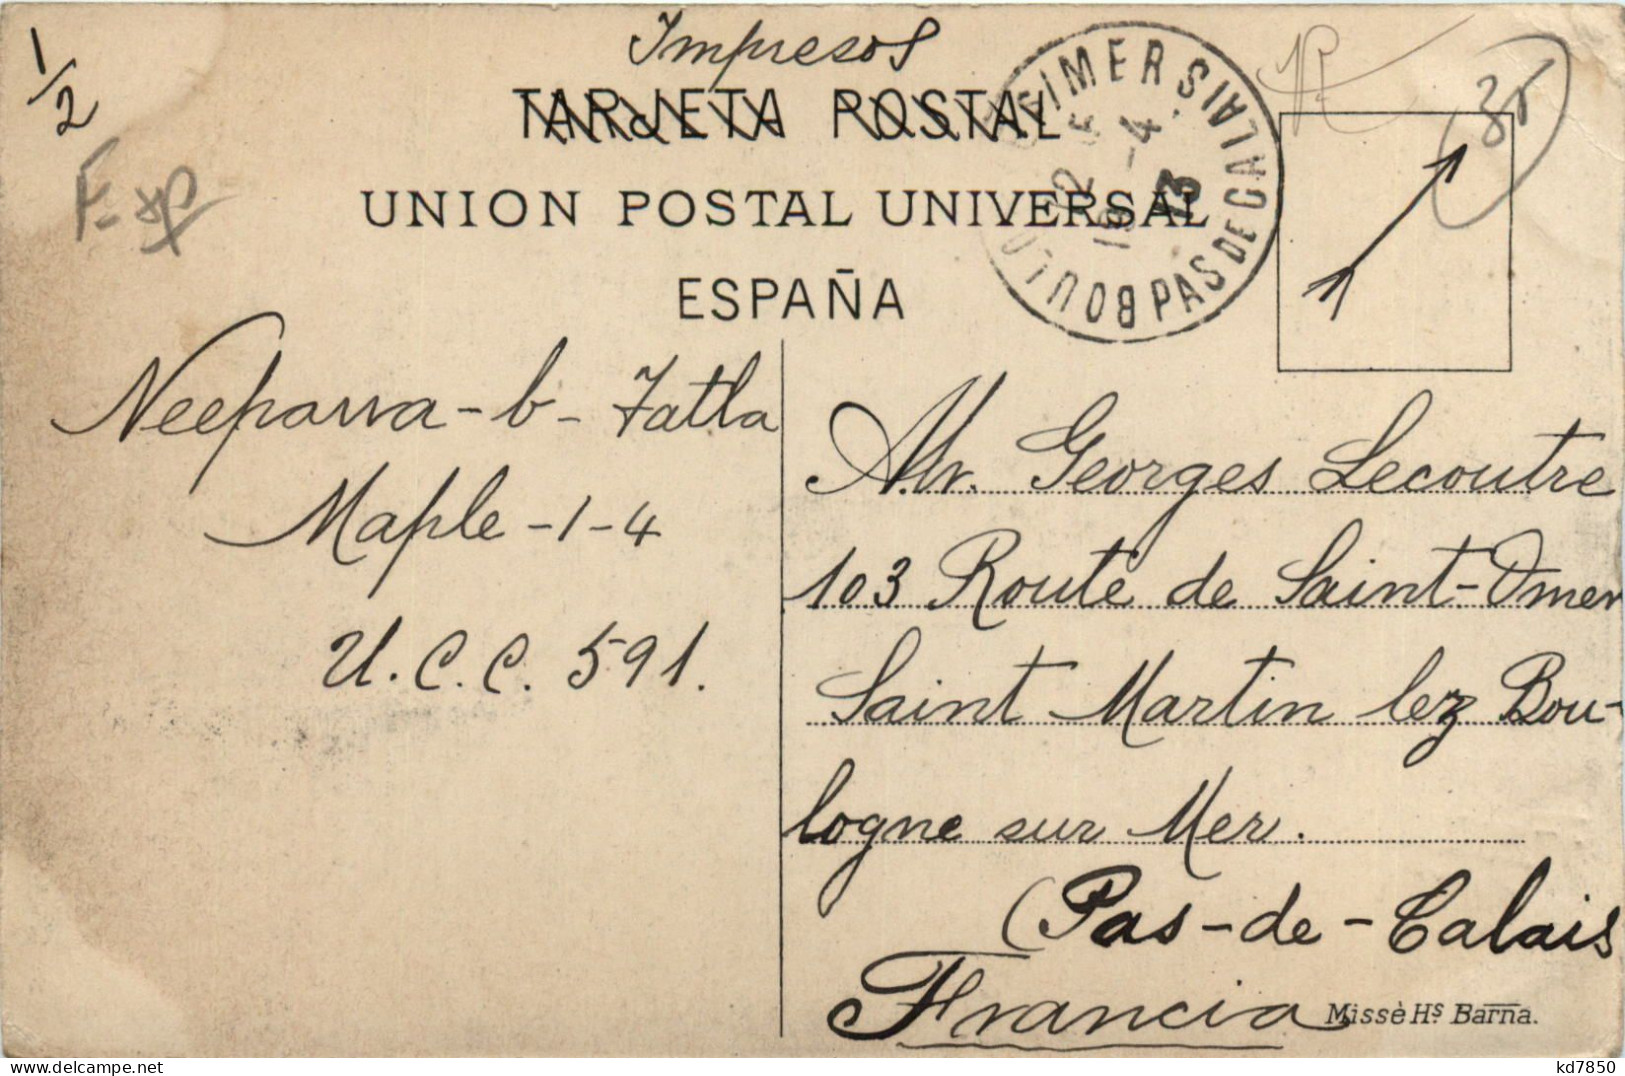 1/2
Impresos
TARJETA POSTAL
UNION POSTAL UNIVERSAL
ESPAÑA
12 -4
13
PAS DE CALAIS
Neeparva-b-Tatla
Maple-1-4
U.C.C. 591.
Mr. Georges Lecoutre
103 Route de Saint-Omer
Saint Martin lez Bou-
logne sur Mer.
(Pas-de-Calais
Francia
Missè Hs. Barna.
kd7850